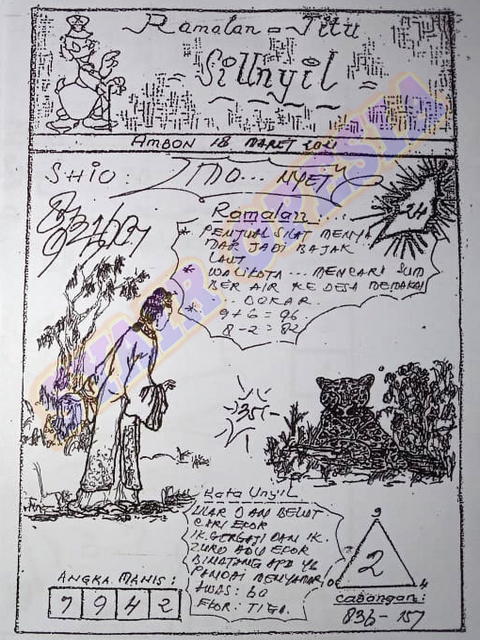 Ramalan - Jitu
SiUnyil
AMBON 18 MARET 2021
SHIO:
MO... NYET
Ramalan...
24
* PENJUAL SILAT MENYA
MAR JADI BAJAK
LAUT
* WALIKOTA ... MENCARI SUM
BER AIR KE DESA MEMAKAI
* .. DOKAR.
9 + 6 = 96
8 - 2 = 82
35
Kata Unyil
ULAR DAN BELUT
CARI EKOR
IK. GERGAJI DAN IK.
ADU EKOR
BINATANG APA YG
PANDAI MENYAMAR
AWAS: 60
EKOR: TIGA.
ANGKA MANIS:
7 9 4 2
9
2
0 4
Cabangan:
836 - 157